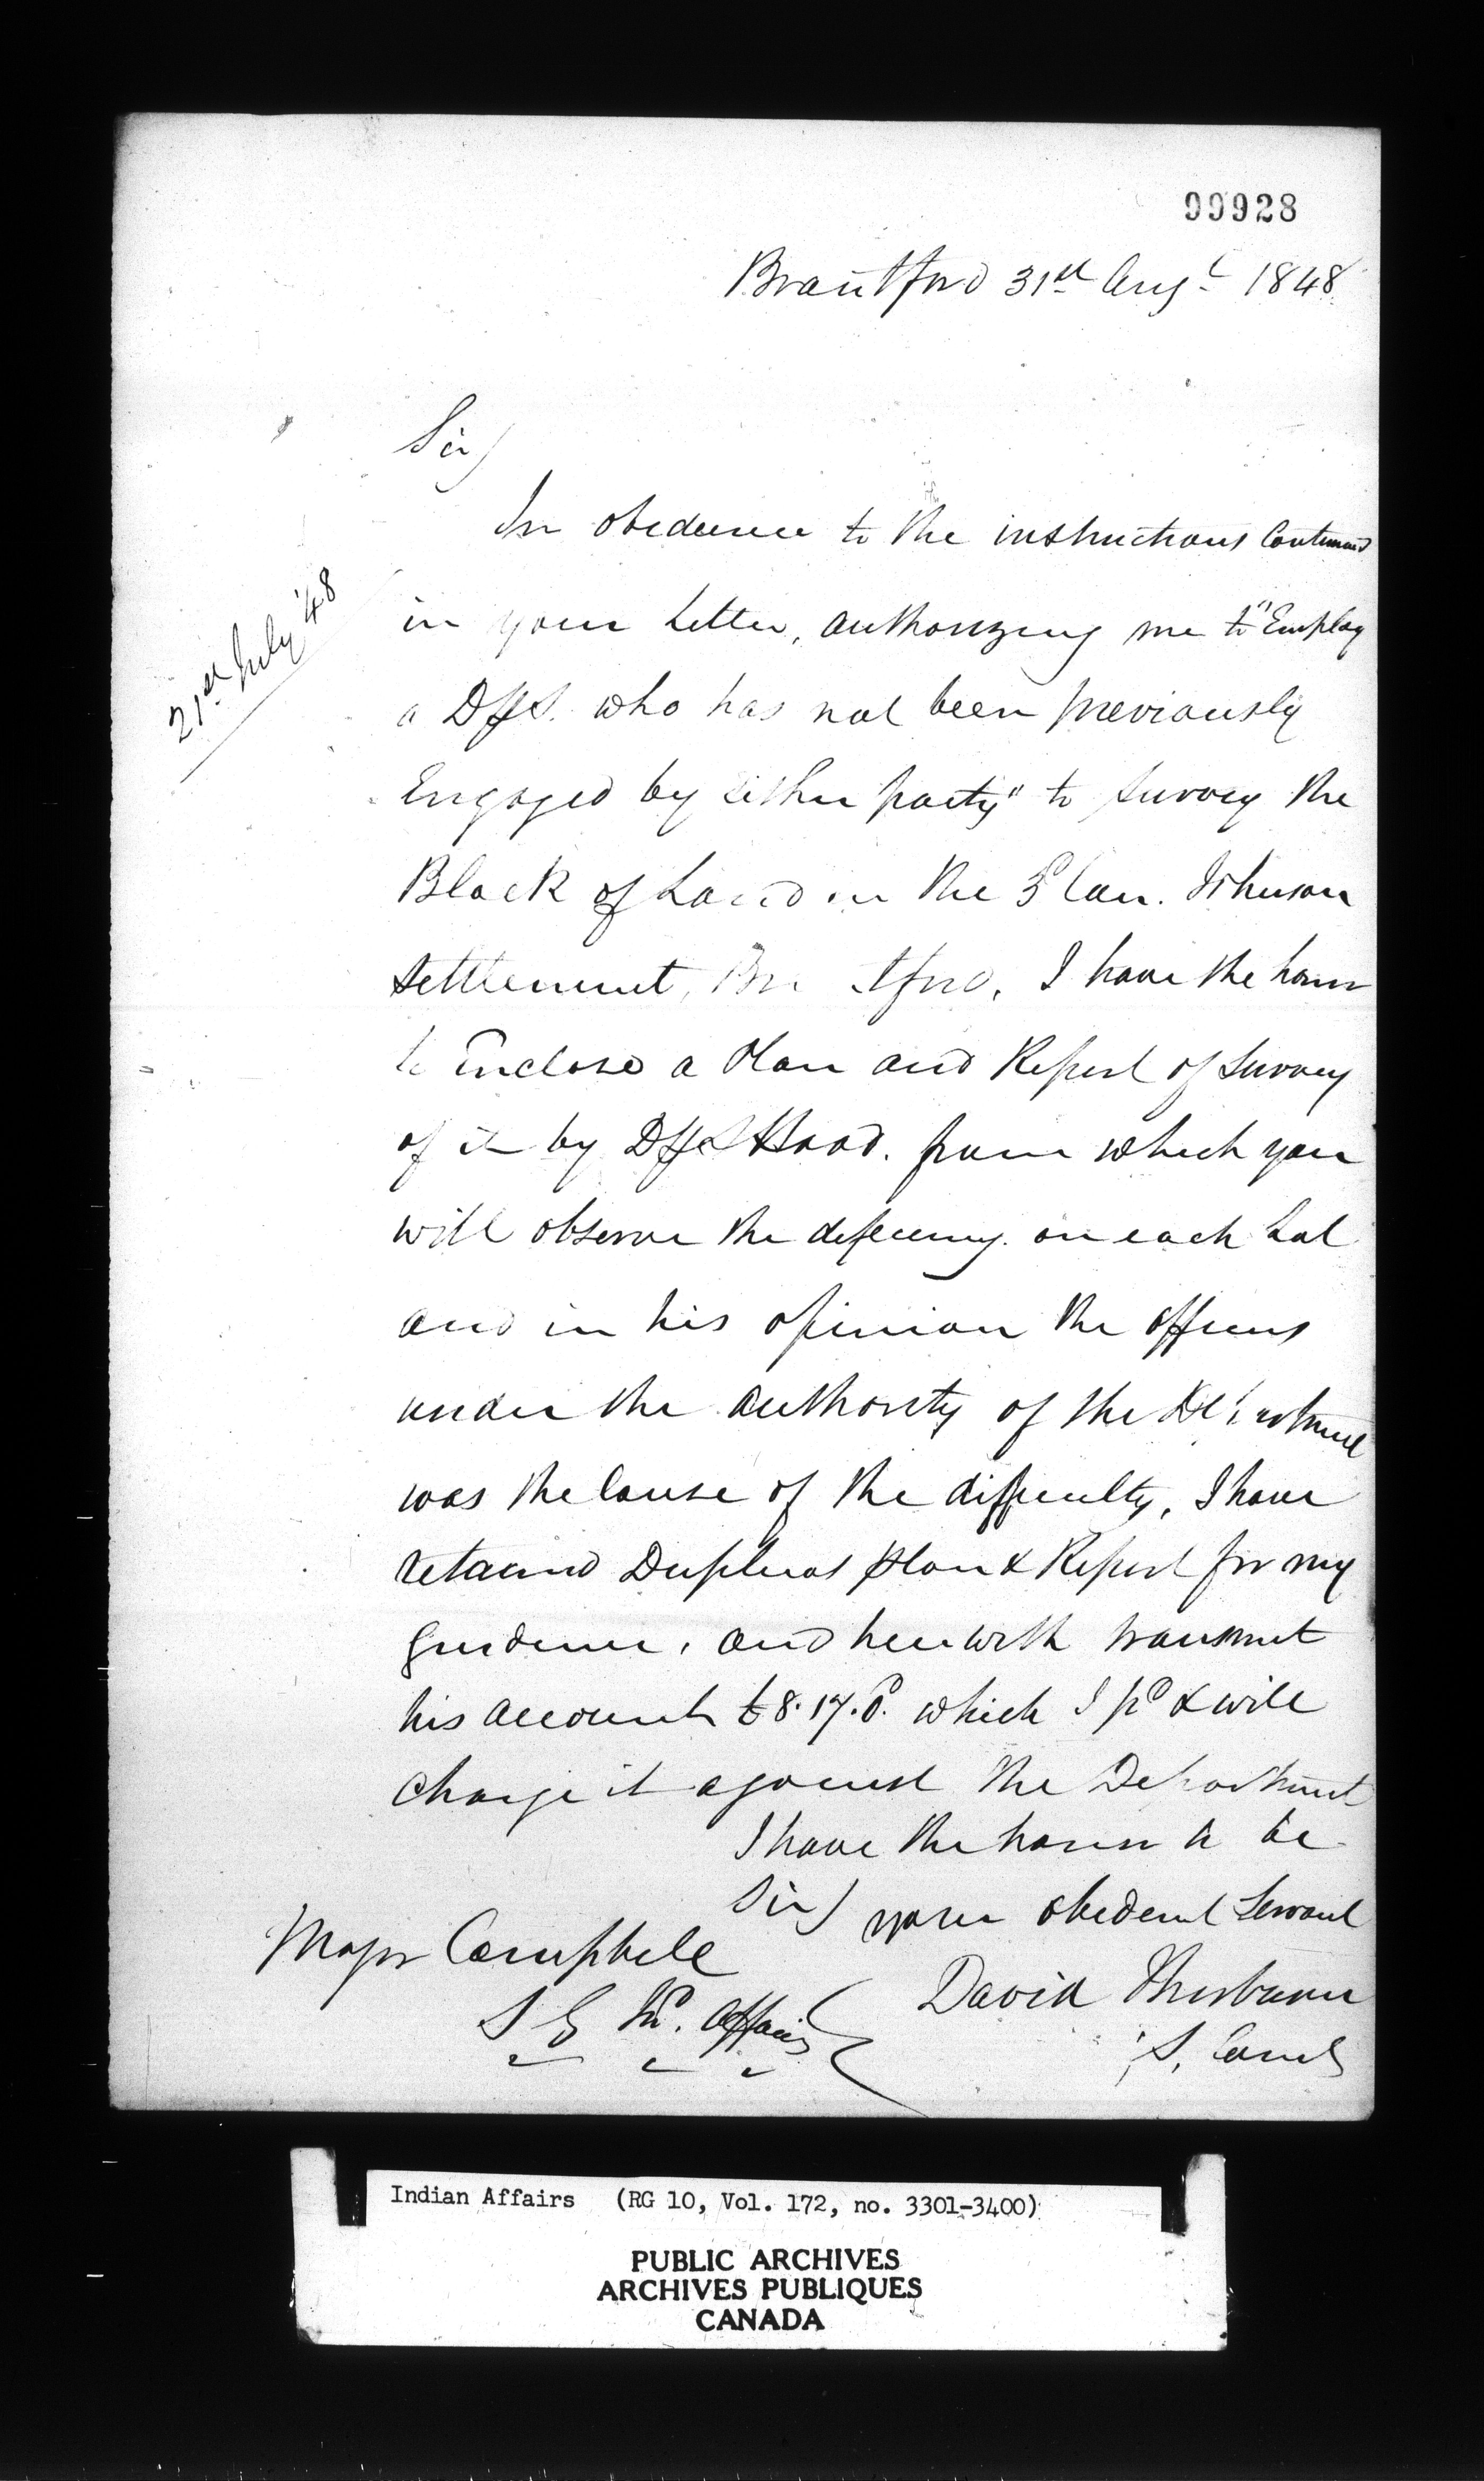 99928
Brantford 31st Augt 1848
Sir,
In obedience to the instructions Contained
21st July '48
in your Letter, authorizing me to "Employ
a DyS. who has not been previously
Engaged by either party" to survey the
Block of Land in the 3d Con. Johnson
settlement, Brantford, I have the honor
to Enclose a Plan and Report of Survey
of it by DyS Hood. from which you
will observe the deficiency on each Lot
and in his opinion the officers
under the authority of the Department
was the Cause of the difficulty, I have
retained Duplicat plan & Report for my
guidance, and herewith transmit
his account £8.17.6. which I pd & will
charge it against the Department
I have the honor to be
Sir, your obedient Servant
Major Campbell
David Thorburn
S G In. Affairs
S. Comr
Indian Affairs (RG 10, Vol. 172, no. 3301-3400)
PUBLIC ARCHIVES
ARCHIVES PUBLIQUES
CANADA